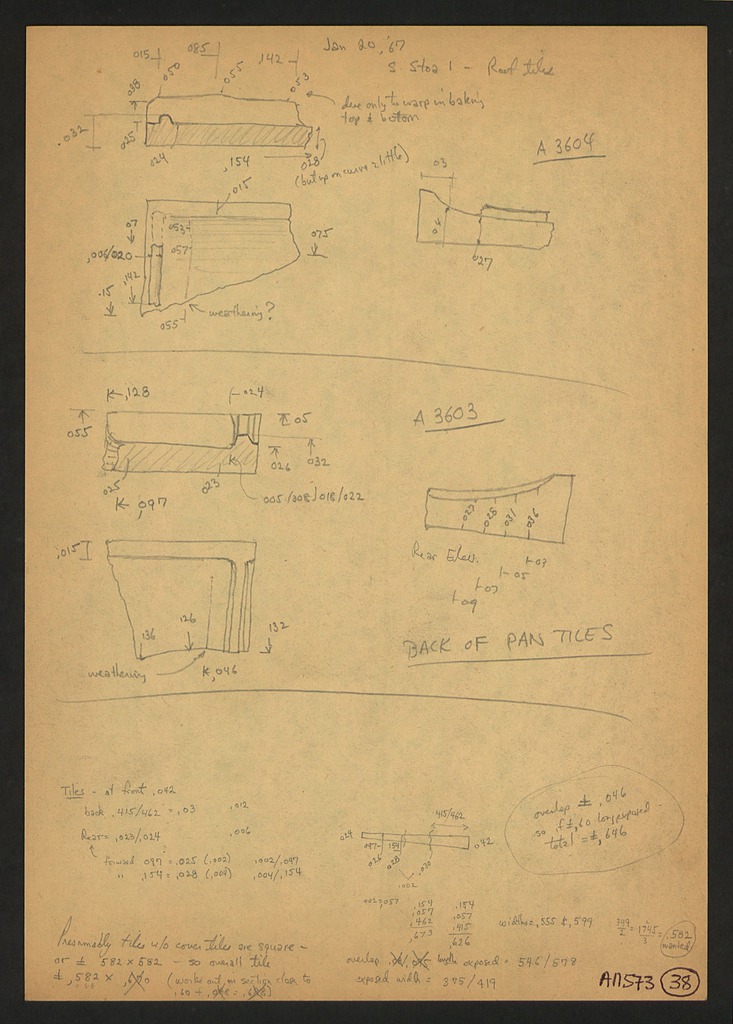 Jan 20, '67
S. Stoa 1 - Roof tiles
.015
.085
.142
.050
.055
.053
.038
.032
.025
.024
.154
.028
due only to warp in baking
top & bottom
(but up on curve a little)
A 3604
03
04
027
.015
07
053
057
.006/020
.142
.15
075
055
weathering?
.128
.024
055
.05
026
032
025
023
.097
005/008 | 018/022
A 3603
027
028
031
036
Rear Elev.
03
05
07
09
.015
136
126
132
weathering
.046
BACK OF PAN TILES
Tiles - at front .042
back .415/462 = .03 .012
Rear = .023/024 .006
forward .097 = .025 (.002) .002/.097
" .154 = .028 (.004) .004/.154
415/462
024
042
097
154
026
028
.030
.002
.154 .154
.057 .057
.462 .415
.673 .626
overlap ± .046
so if ±.60 long exposed -
total = ±.646
widths = .555 ± .599
349/2 = 1745/3 = .582
wanted
Presumably tiles w/o cover tiles are square -
or ± 582 x 582 - so overall tile
± .582 x
(works out in section close to
overlap length exposed = 546/578
exposed width = 375/419
AΠ573 38